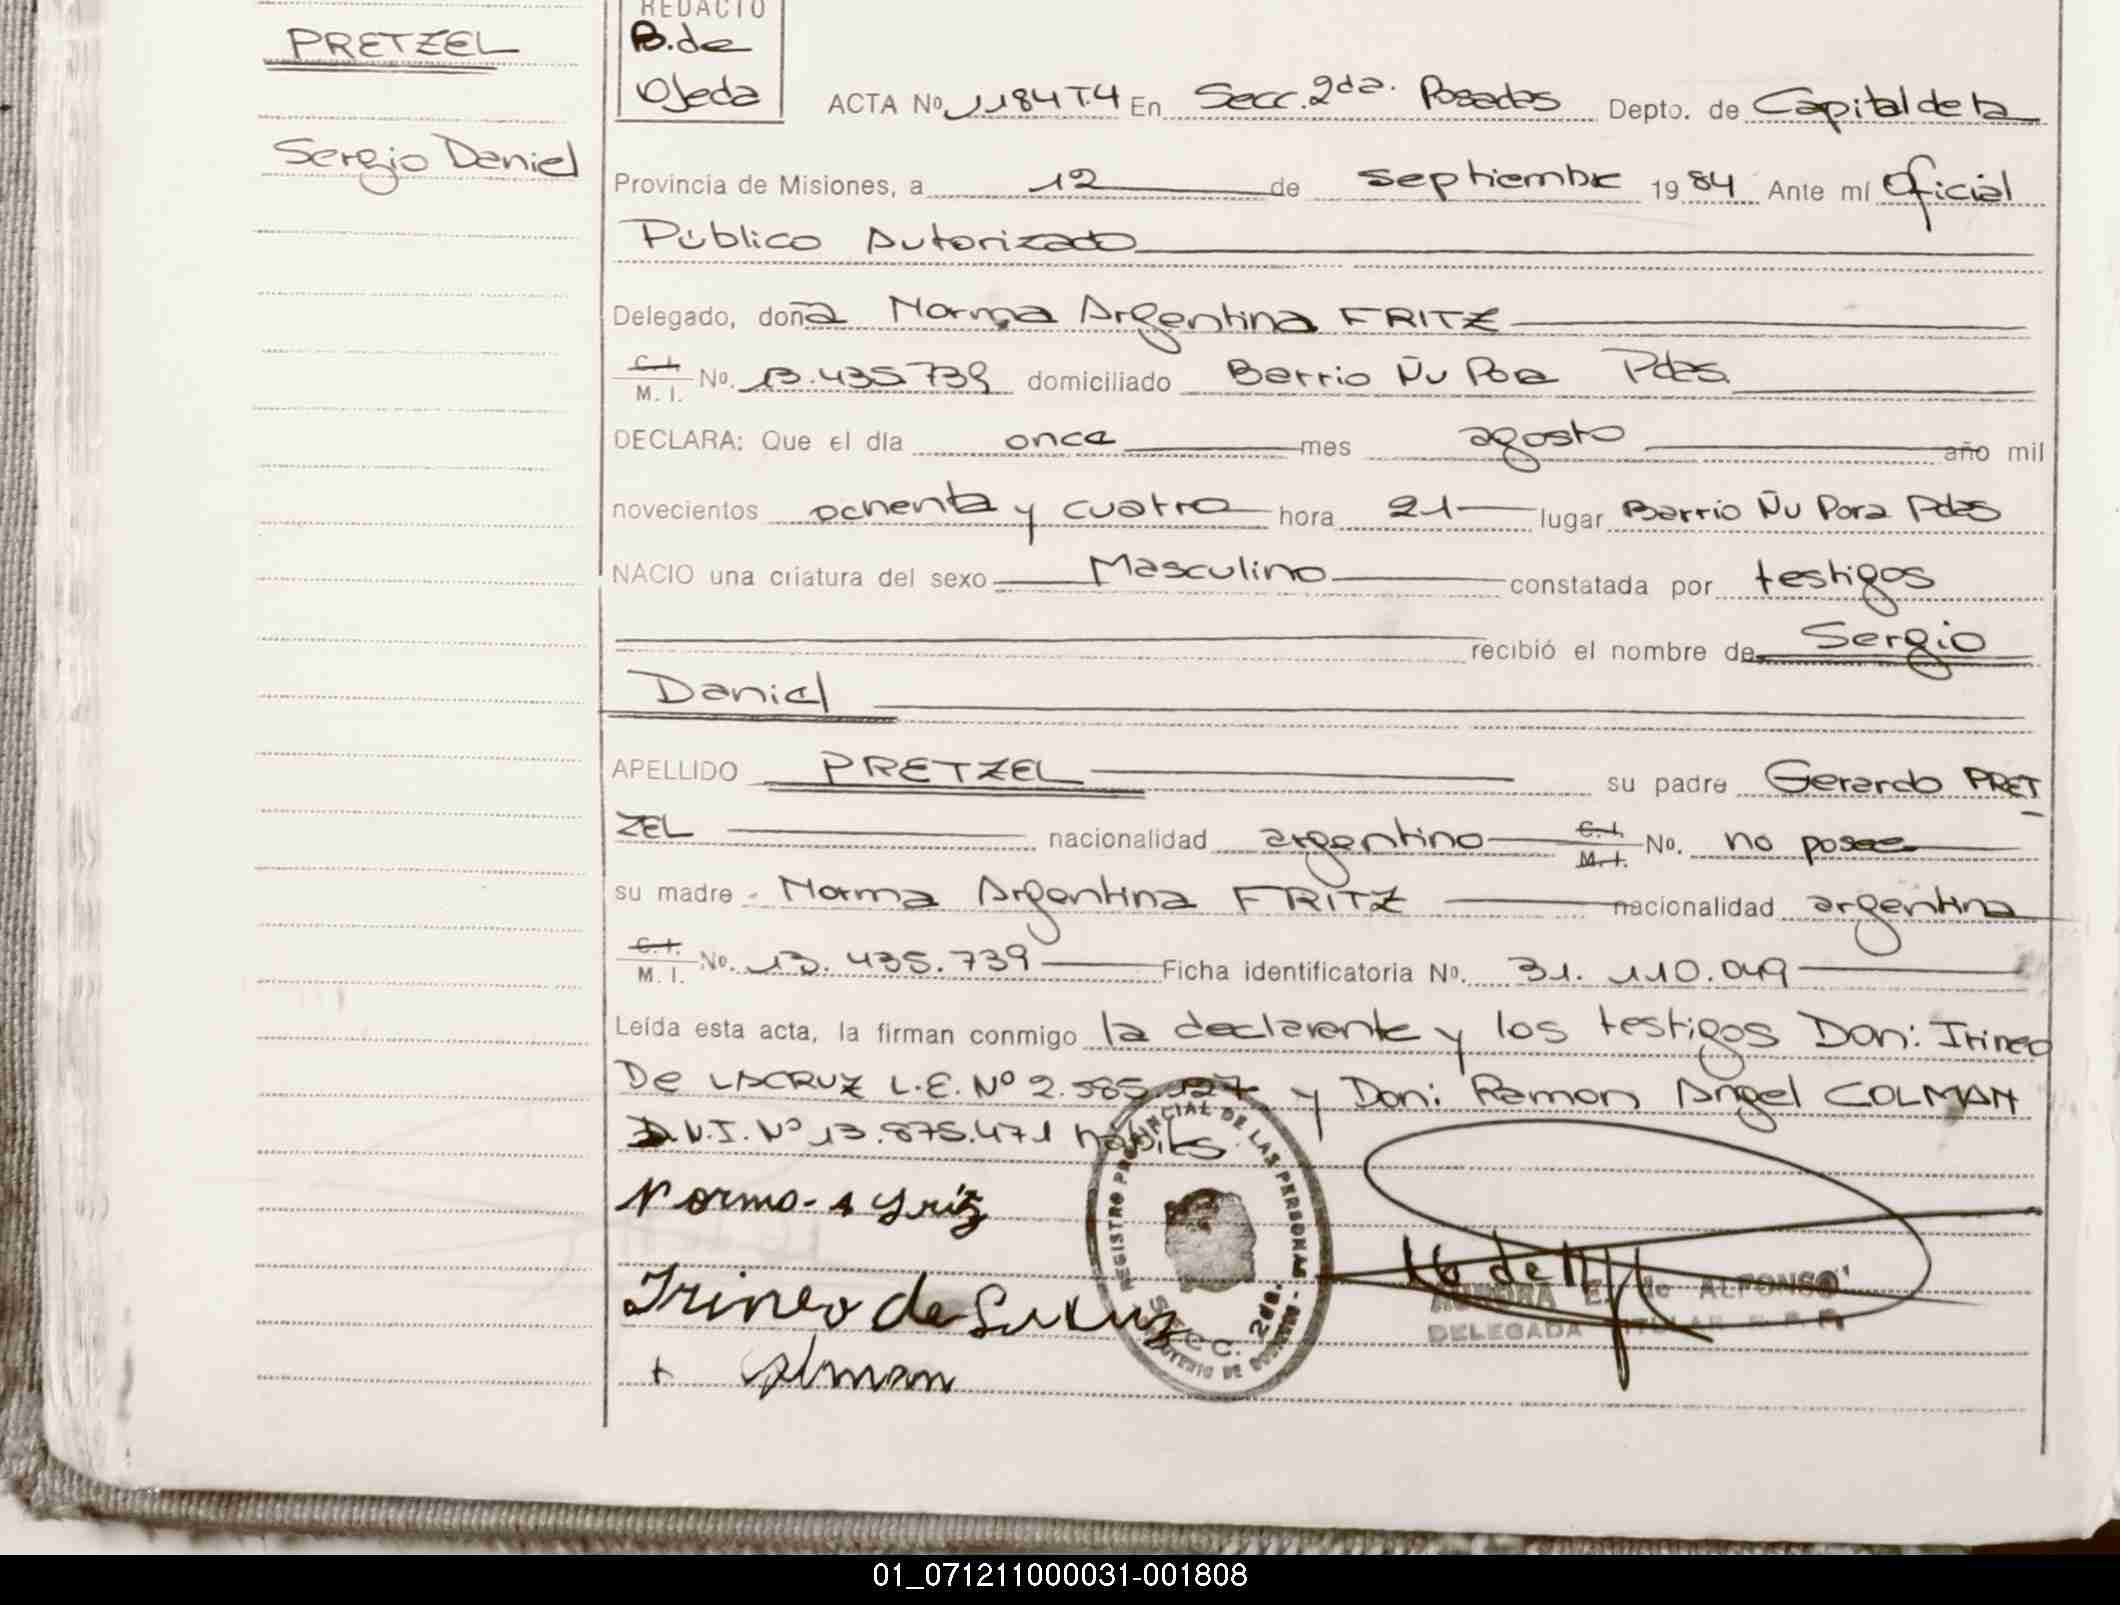 PRETZEL
Sergio Daniel
REDACTO
B. de
Ojeda
ACTA No 1184 T.4 En Secc. 2da. Posadas Depto. de Capital de la
Provincia de Misiones, a 12 de septiembre 1984 Ante mí Oficial
Público Autorizado
Delegado, doña Norma Argentina FRITZ
C.I. M.I. No. 13.435739 domiciliado Barrio Ñu Pora Pdas.
DECLARA: Que el día once mes agosto año mil
novecientos ochenta y cuatro hora 21 lugar Barrio Ñu Pora Pdas
NACIO una criatura del sexo Masculino constatada por testigos
recibió el nombre de Sergio
Daniel
APELLIDO PRETZEL su padre Gerardo PRET
ZEL nacionalidad argentino C.I. M.I. No. no posee
su madre Norma Argentina FRITZ nacionalidad argentina
C.I. M.I. No. 13.435.739 Ficha identificatoria No. 31.110.049
Leída esta acta, la firman conmigo la declarante y los testigos Don: Irineo
De LACRUZ L.E. Nº 2.585.127 y Don: Ramon Angel COLMAN
D.N.I. Nº 13.875.471 habiles.
Norma A Fritz
Irineo de La Cruz
+ Colman
REGISTRO PROVINCIAL DE LAS PERSONAS
SECC. 2da.
MINISTERIO DE GOBIERNO
AURORA E. de ALFONSO
DELEGADA TITULAR
01_071211000031-001808